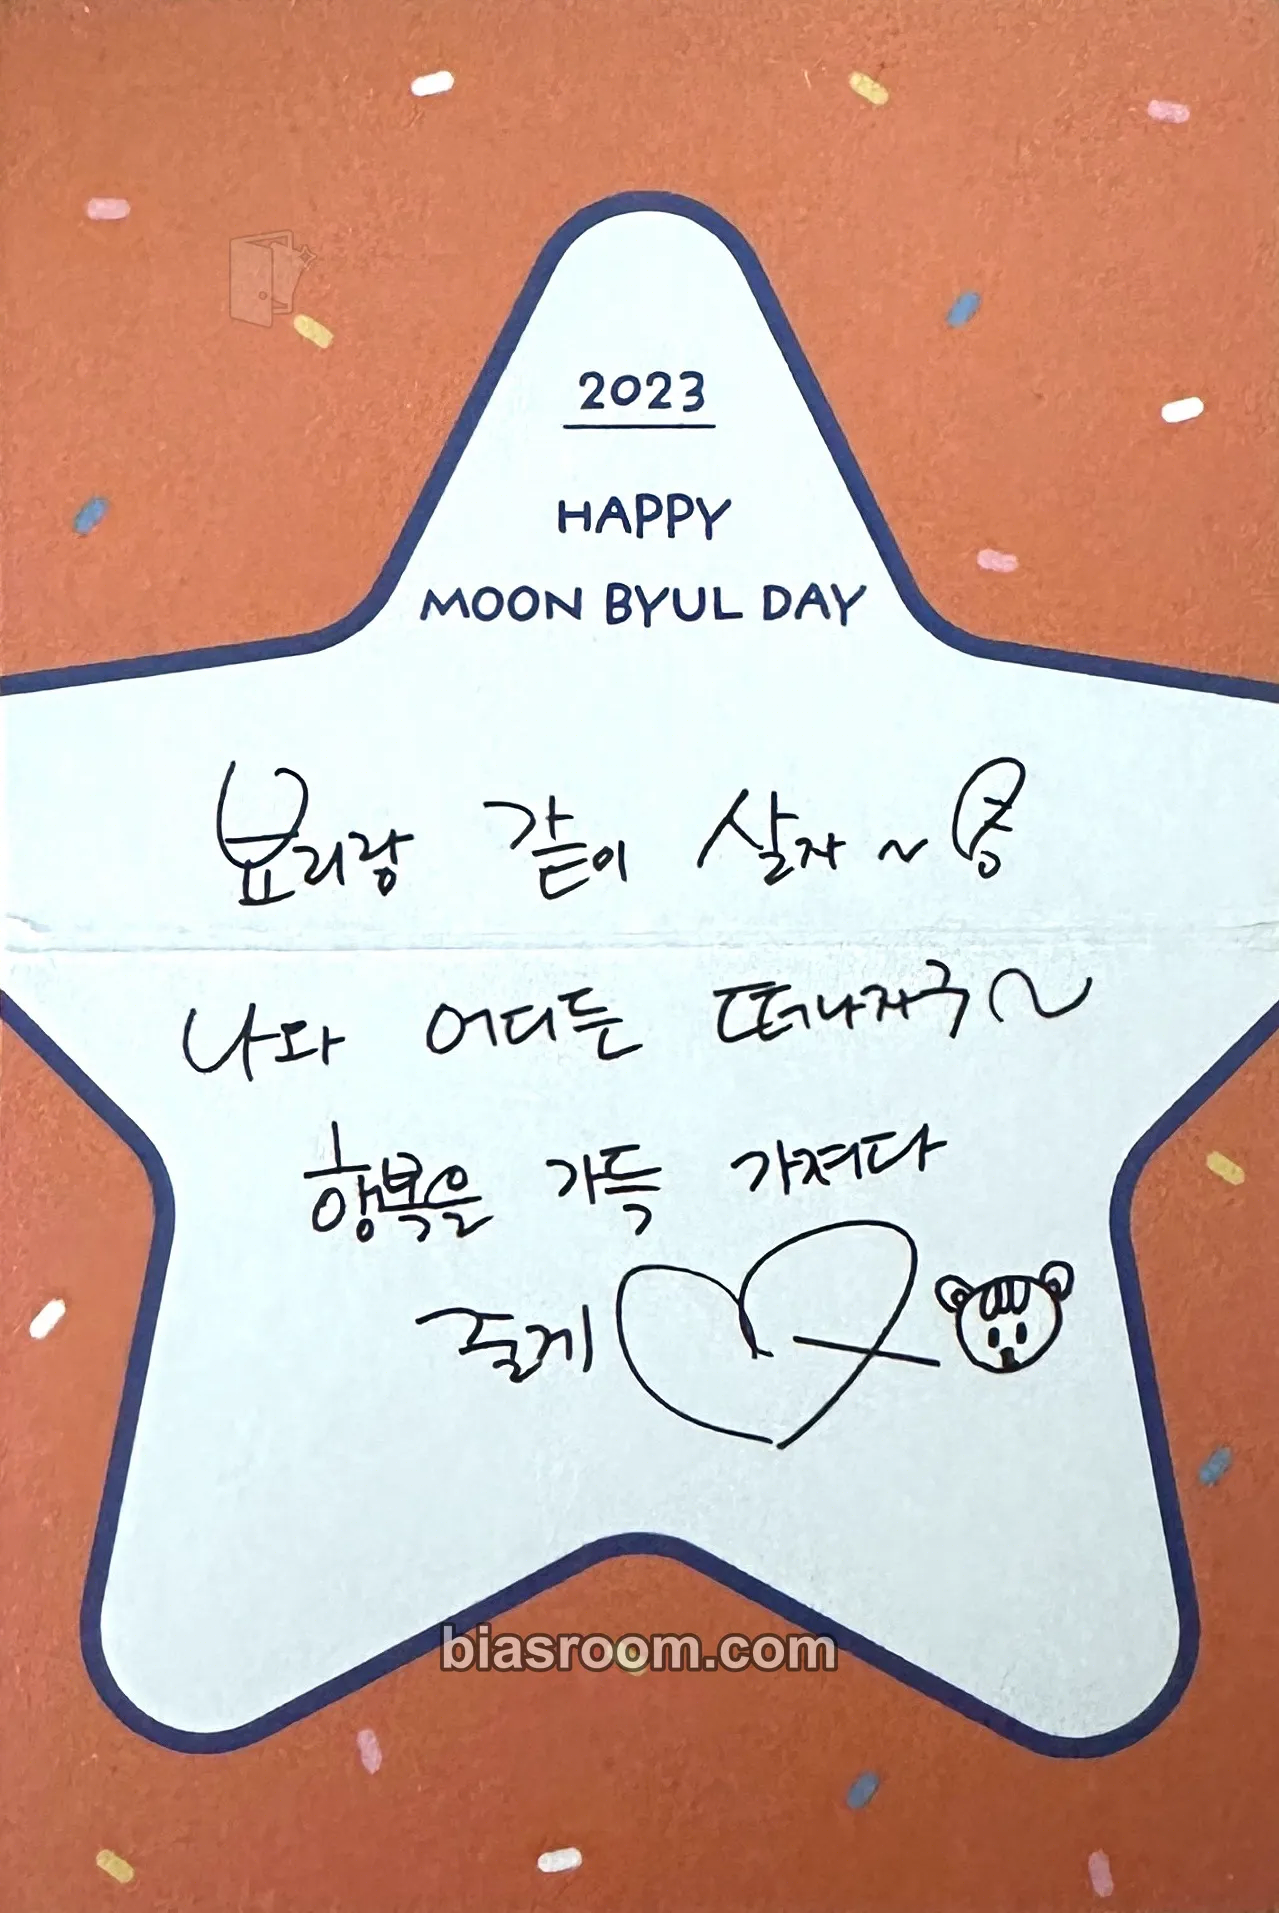 2023
HAPPY
MOON BYUL DAY
뵤리랑 같이 살자~
나와 어디든 떠나자구~
행복은 가득 가져다
줄게
biasroom.com